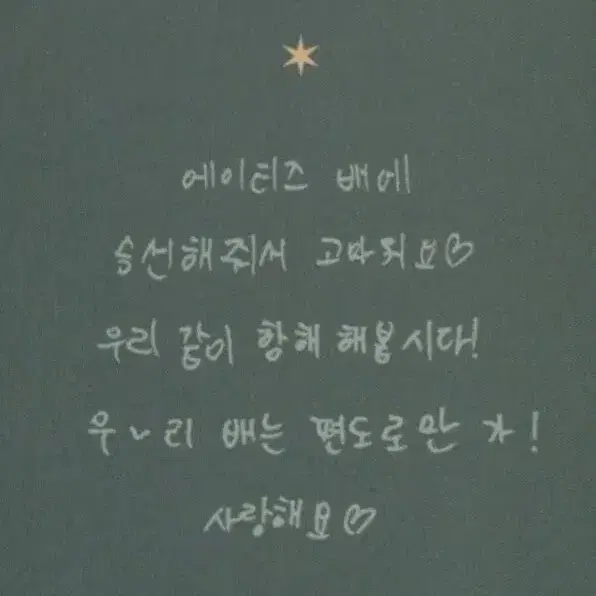 에이티즈 배에
승선해줘서 고마워요♡
우리 같이 항해 해봅시다!
우리 배는 편도로만 가!
사랑해요♡